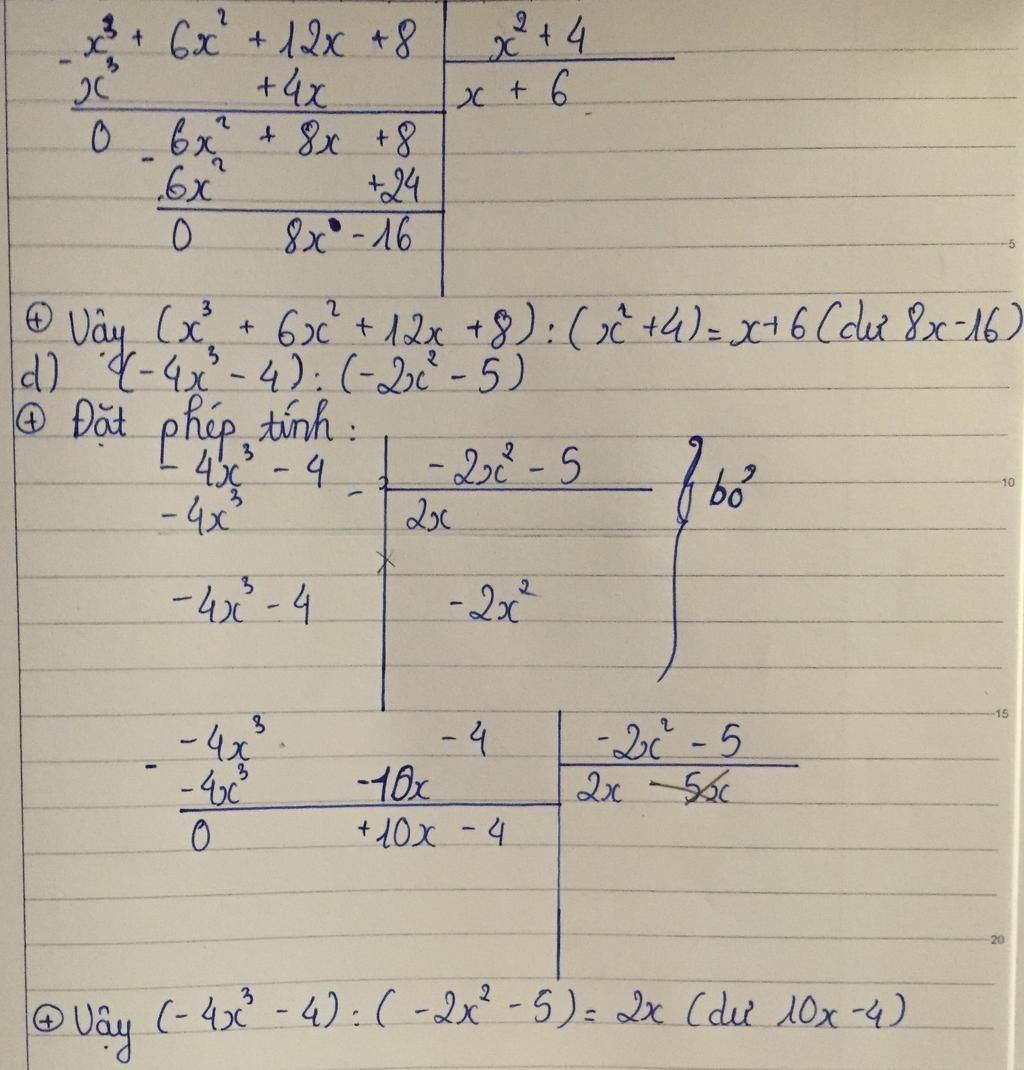 - x³ + 6x² + 12x + 8 | x² + 4
x³ + 4x | x + 6
0 - 6x² + 8x + 8
6x² + 24
0 8x - 16
⊕ Vậy (x³ + 6x² + 12x + 8) : (x² + 4) = x + 6 (dư 8x - 16)
d) (-4x³ - 4) : (-2x² - 5)
⊕ Đặt phép tính :
- 4x³ - 4 | - 2x² - 5
- 4x³ | 2x
bỏ
- 4x³ - 4 | - 2x²
- -4x³ - 4 | -2x² - 5
-4x³ - 10x | 2x - 5x
0 + 10x - 4
⊕ Vậy (-4x³ - 4) : (-2x² - 5) = 2x (dư 10x - 4)
5
10
15
20